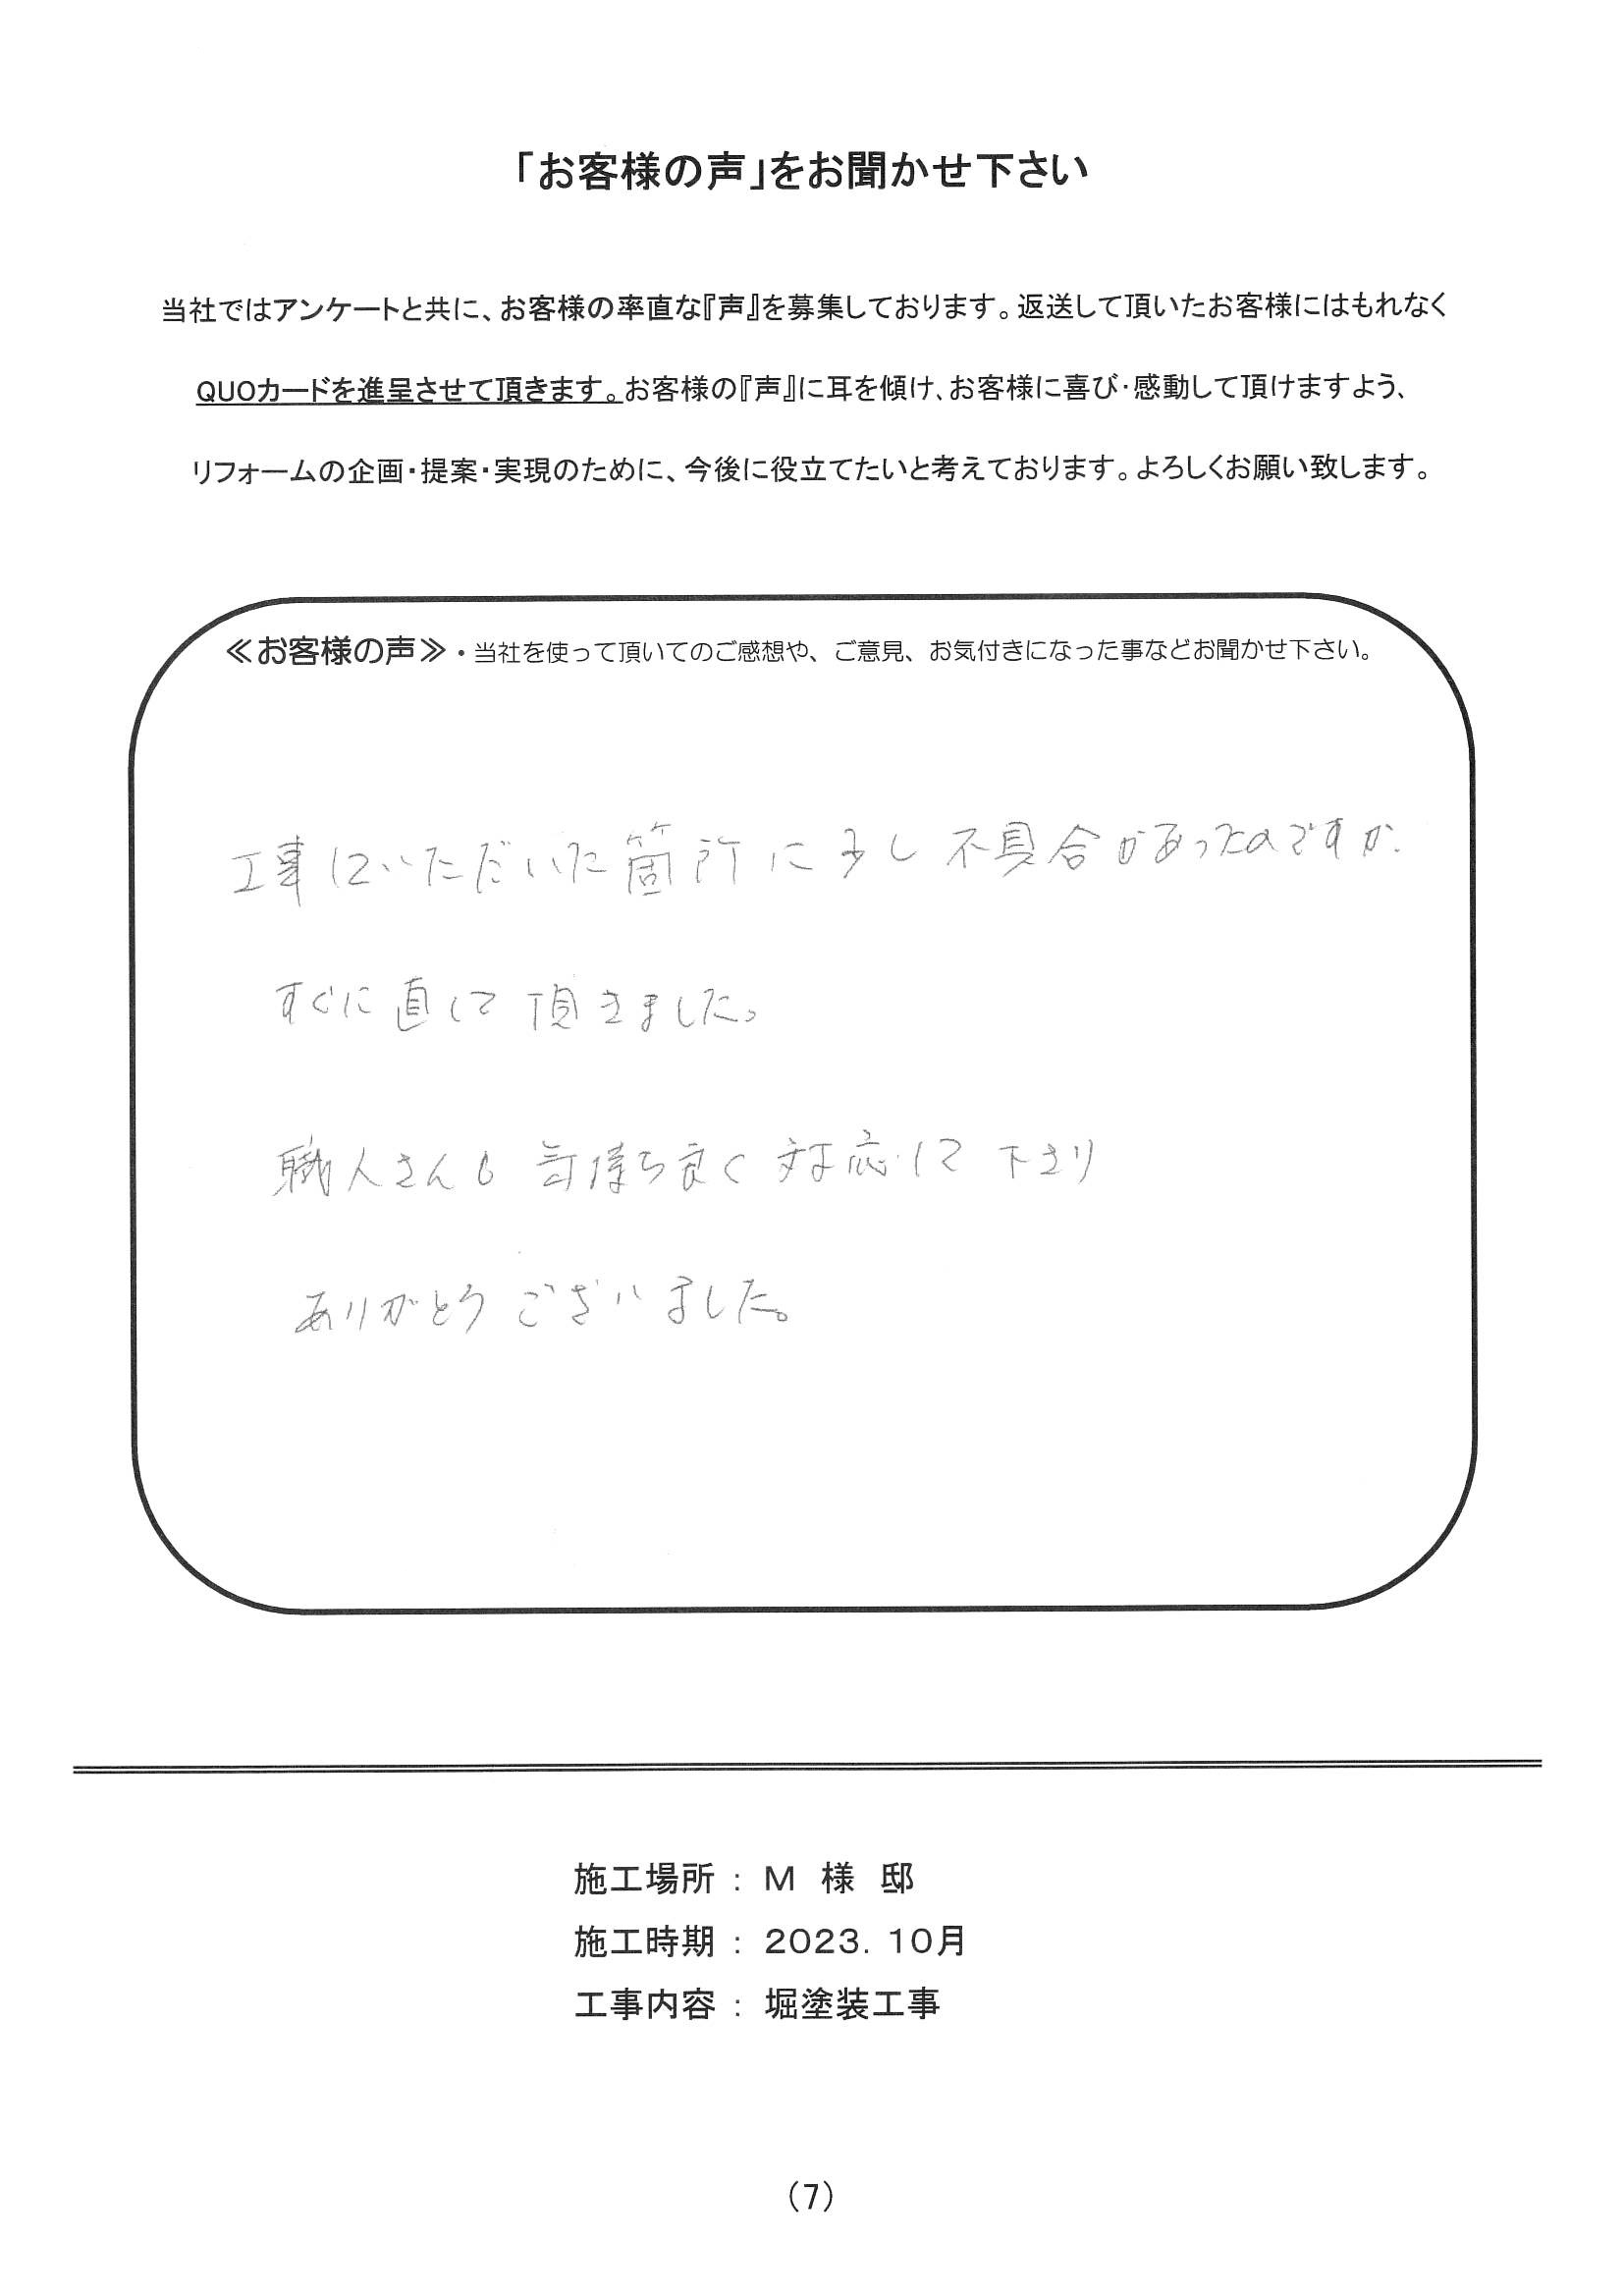 「お客様の声」をお聞かせ下さい
当社ではアンケートと共に、お客様の率直な『声』を募集しております。返送して頂いたお客様にはもれなく
QUOカードを進呈させて頂きます。お客様の『声』に耳を傾け、お客様に喜び・感動して頂けますよう、
リフォームの企画・提案・実現のために、今後に役立てたいと考えております。よろしくお願い致します。
≪お客様の声≫・当社を使って頂いてのご感想や、ご意見、お気付きになった事などお聞かせ下さい。
工事していただいた箇所に少し不具合があったのですが、
すぐに直して頂きました。
職人さんも気持ち良く対応して下さり
ありがとうございました。
施工場所 : M 様 邸
施工時期 : 2023. 10月
工事内容 : 堀塗装工事
(7)